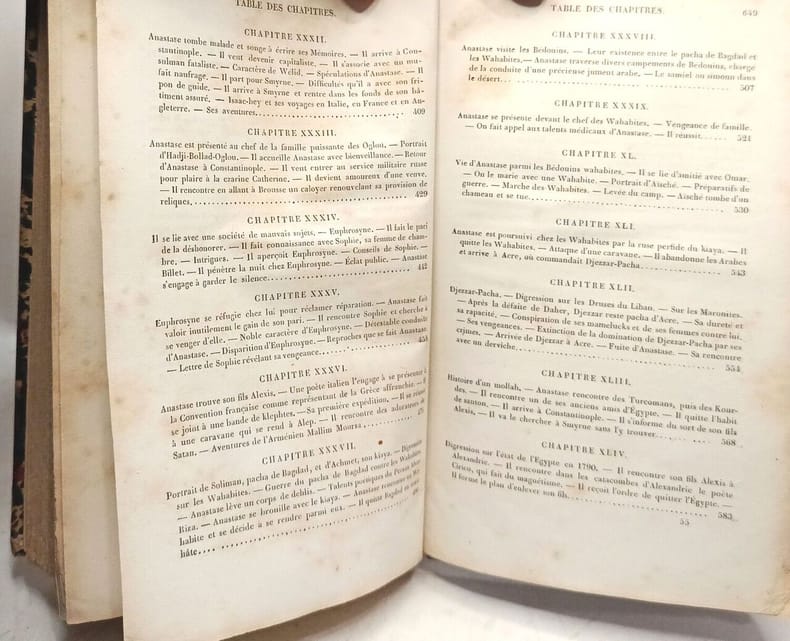 TABLE DES CHAPITRES.
CHAPITRE XXXII.
Anastase tombe malade et songe à écrire ses Mémoires. — Il arrive à Con-
stantinople. — Il veut devenir capitaliste. — Il s'associe avec un mu-
sulman fataliste. — Caractère de Wélid. — Spéculations d'Anastase. — Il
fait naufrage. — Il part pour Smyrne. — Difficultés qu'il a avec son fri-
pon de guide. — Il arrive à Smyrne et rentre dans les fonds de son bâ-
timent assuré. — Isaac-bey et ses voyages en Italie, en France et en An-
gleterre. — Ses aventures. 409
CHAPITRE XXXIII.
Anastase est présenté au chef de la famille puissante des Oglou. — Portrait
d'Hadji-Bollad-Oglou. — Il accueille Anastase avec bienveillance. — Retour
d'Anastase à Constantinople. — Il veut entrer au service militaire russe
pour plaire à la czarine Catherine. — Il devient amoureux d'une veuve.
— Il rencontre en allant à Brousse un caloyer renouvelant sa provision de
reliques. 429
CHAPITRE XXXIV.
Il se lie avec une société de mauvais sujets. — Euphrosyne. — Il fait le pari
de la déshonorer. — Il fait connaissance avec Sophie, sa femme de cham-
bre. — Intrigues. — Il aperçoit Euphrosyne. — Conseils de Sophie. —
Billet. — Il pénètre la nuit chez Euphrosyne. — Éclat public. — Anastase
s'engage à garder le silence. 442
CHAPITRE XXXV.
Euphrosyne se réfugie chez lui pour réclamer réparation. — Anastase fait
valoir inutilement le gain de son pari. — Il rencontre Sophie et cherche à
se venger d'elle. — Noble caractère d'Euphrosyne. — Détestable conduite
d'Anastase. — Disparition d'Euphrosyne. — Reproches que se fait Anastase.
— Lettre de Sophie révélant sa vengeance.
CHAPITRE XXXVI.
Anastase trouve son fils Alexis. — Une poète italien l'engage à se présenter à
la Convention française comme représentant de la Grèce affranchie. — Il
se joint à une bande de klephtes. — Sa première expédition. — Il se réunit
à une caravane qui se rend à Alep. — Il rencontre des adorateurs de
Satan. — Aventures de l'Arménien Mallim Moursa.
CHAPITRE XXXVII.
Portrait de Soliman, pacha de Bagdad, et d'Achmet, son kiaya. — Digression
sur les Wahabites. — Guerre du pacha de Bagdad contre les Wahabites.
— Anastase lève un corps de dehlis. — Talents poétiques du Persan
Riza. — Anastase se brouille avec le kiaya. — Anastase rencontre un Wa-
habite et se décide à se rendre parmi eux. — Il quitte Bagdad en toute
hâte.
TABLE DES CHAPITRES. 649
CHAPITRE XXXVIII.
Anastase visite les Bédouins. — Leur existence entre le pacha de Bagdad et
les Wahabites. — Anastase traverse divers campements de Bédouins, chargé
de la conduite d'une précieuse jument arabe. — Le samiel ou simoun dans
le désert. 507
CHAPITRE XXXIX.
Anastase se présente devant le chef des Wahabites. — Vengeance de famille.
— On fait appel aux talents médicaux d'Anastase. — Il réussit. 521
CHAPITRE XL.
Vie d'Anastase parmi les Bédouins wahabites. — Il se lie d'amitié avec Omar.
— On le marie avec une Wahabite. — Portrait d'Aïsché. — Préparatifs de
guerre. — Marche des Wahabites. — Levée du camp. — Aïsché tombe d'un
chameau et se tue. 530
CHAPITRE XLI.
Anastase est poursuivi chez les Wahabites par la ruse perfide du kiaya. — Il
quitte les Wahabites. — Attaque d'une caravane. — Il abandonne les Arabes
et arrive à Acre, où commandait Djezzar-Pacha. 543
CHAPITRE XLII.
Djezzar-Pacha. — Digression sur les Druses du Liban. — Sur les Maronites.
— Après la défaite de Daher, Djezzar reste pacha d'Acre. — Sa dureté et
sa rapacité. — Conspiration de ses mamelucks et de ses femmes contre lui.
— Ses vengeances. — Extinction de la domination de Djezzar-Pacha par ses
crimes. — Arrivée de Djezzar à Acre. — Fuite d'Anastase. — Sa rencontre
avec un derviche. 554
CHAPITRE XLIII.
Histoire d'un mollah. — Anastase rencontre des Turcomans, puis des Kour-
des. — Il rencontre un de ses anciens amis d'Égypte. — Il quitte l'habit
de santon. — Il arrive à Constantinople. — Il s'informe du sort de son fils
Alexis. — Il va le chercher à Smyrne sans l'y trouver. 568
CHAPITRE XLIV.
Digression sur l'état de l'Égypte en 1790. — Il rencontre son fils Alexis à
Alexandrie. — Il rencontre dans les catacombes d'Alexandrie le poète
Cirico, qui fait du magnétisme. — Il reçoit l'ordre de quitter l'Égypte. —
Il forme le plan d'enlever son fils. 583
55